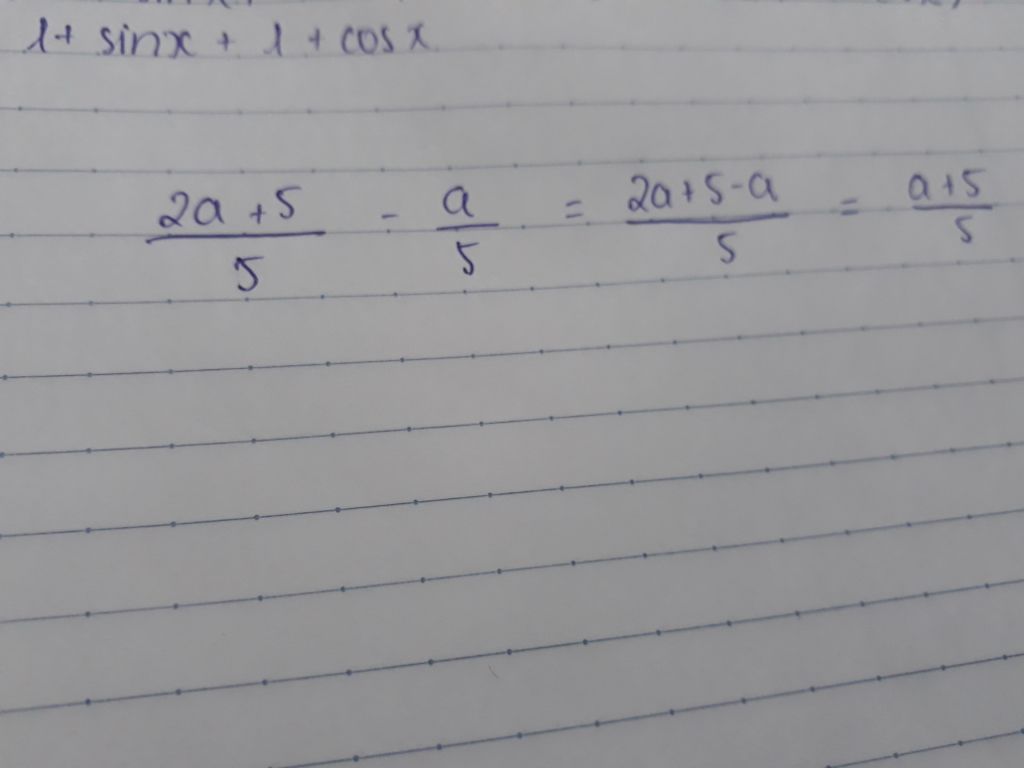 1+ sinx + 1 + cosx
2a+5/5 - a/5 = 2a+5-a/5 = a+5/5